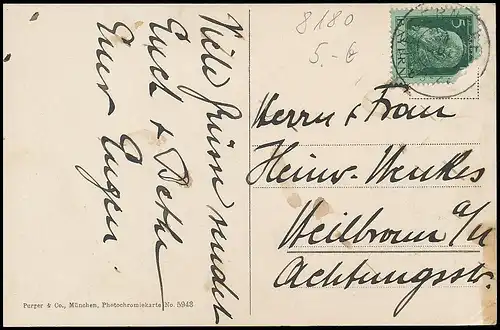 Viele Grüsse sendet
Euch + Bethe
Euer Eugen
8180
5.-€
5
BAYERN
Herrn + Frau
Heinr.
Heilbronn a/N
Achtungsstr.
Purger & Co., München, Photochromiekarte No. 5943